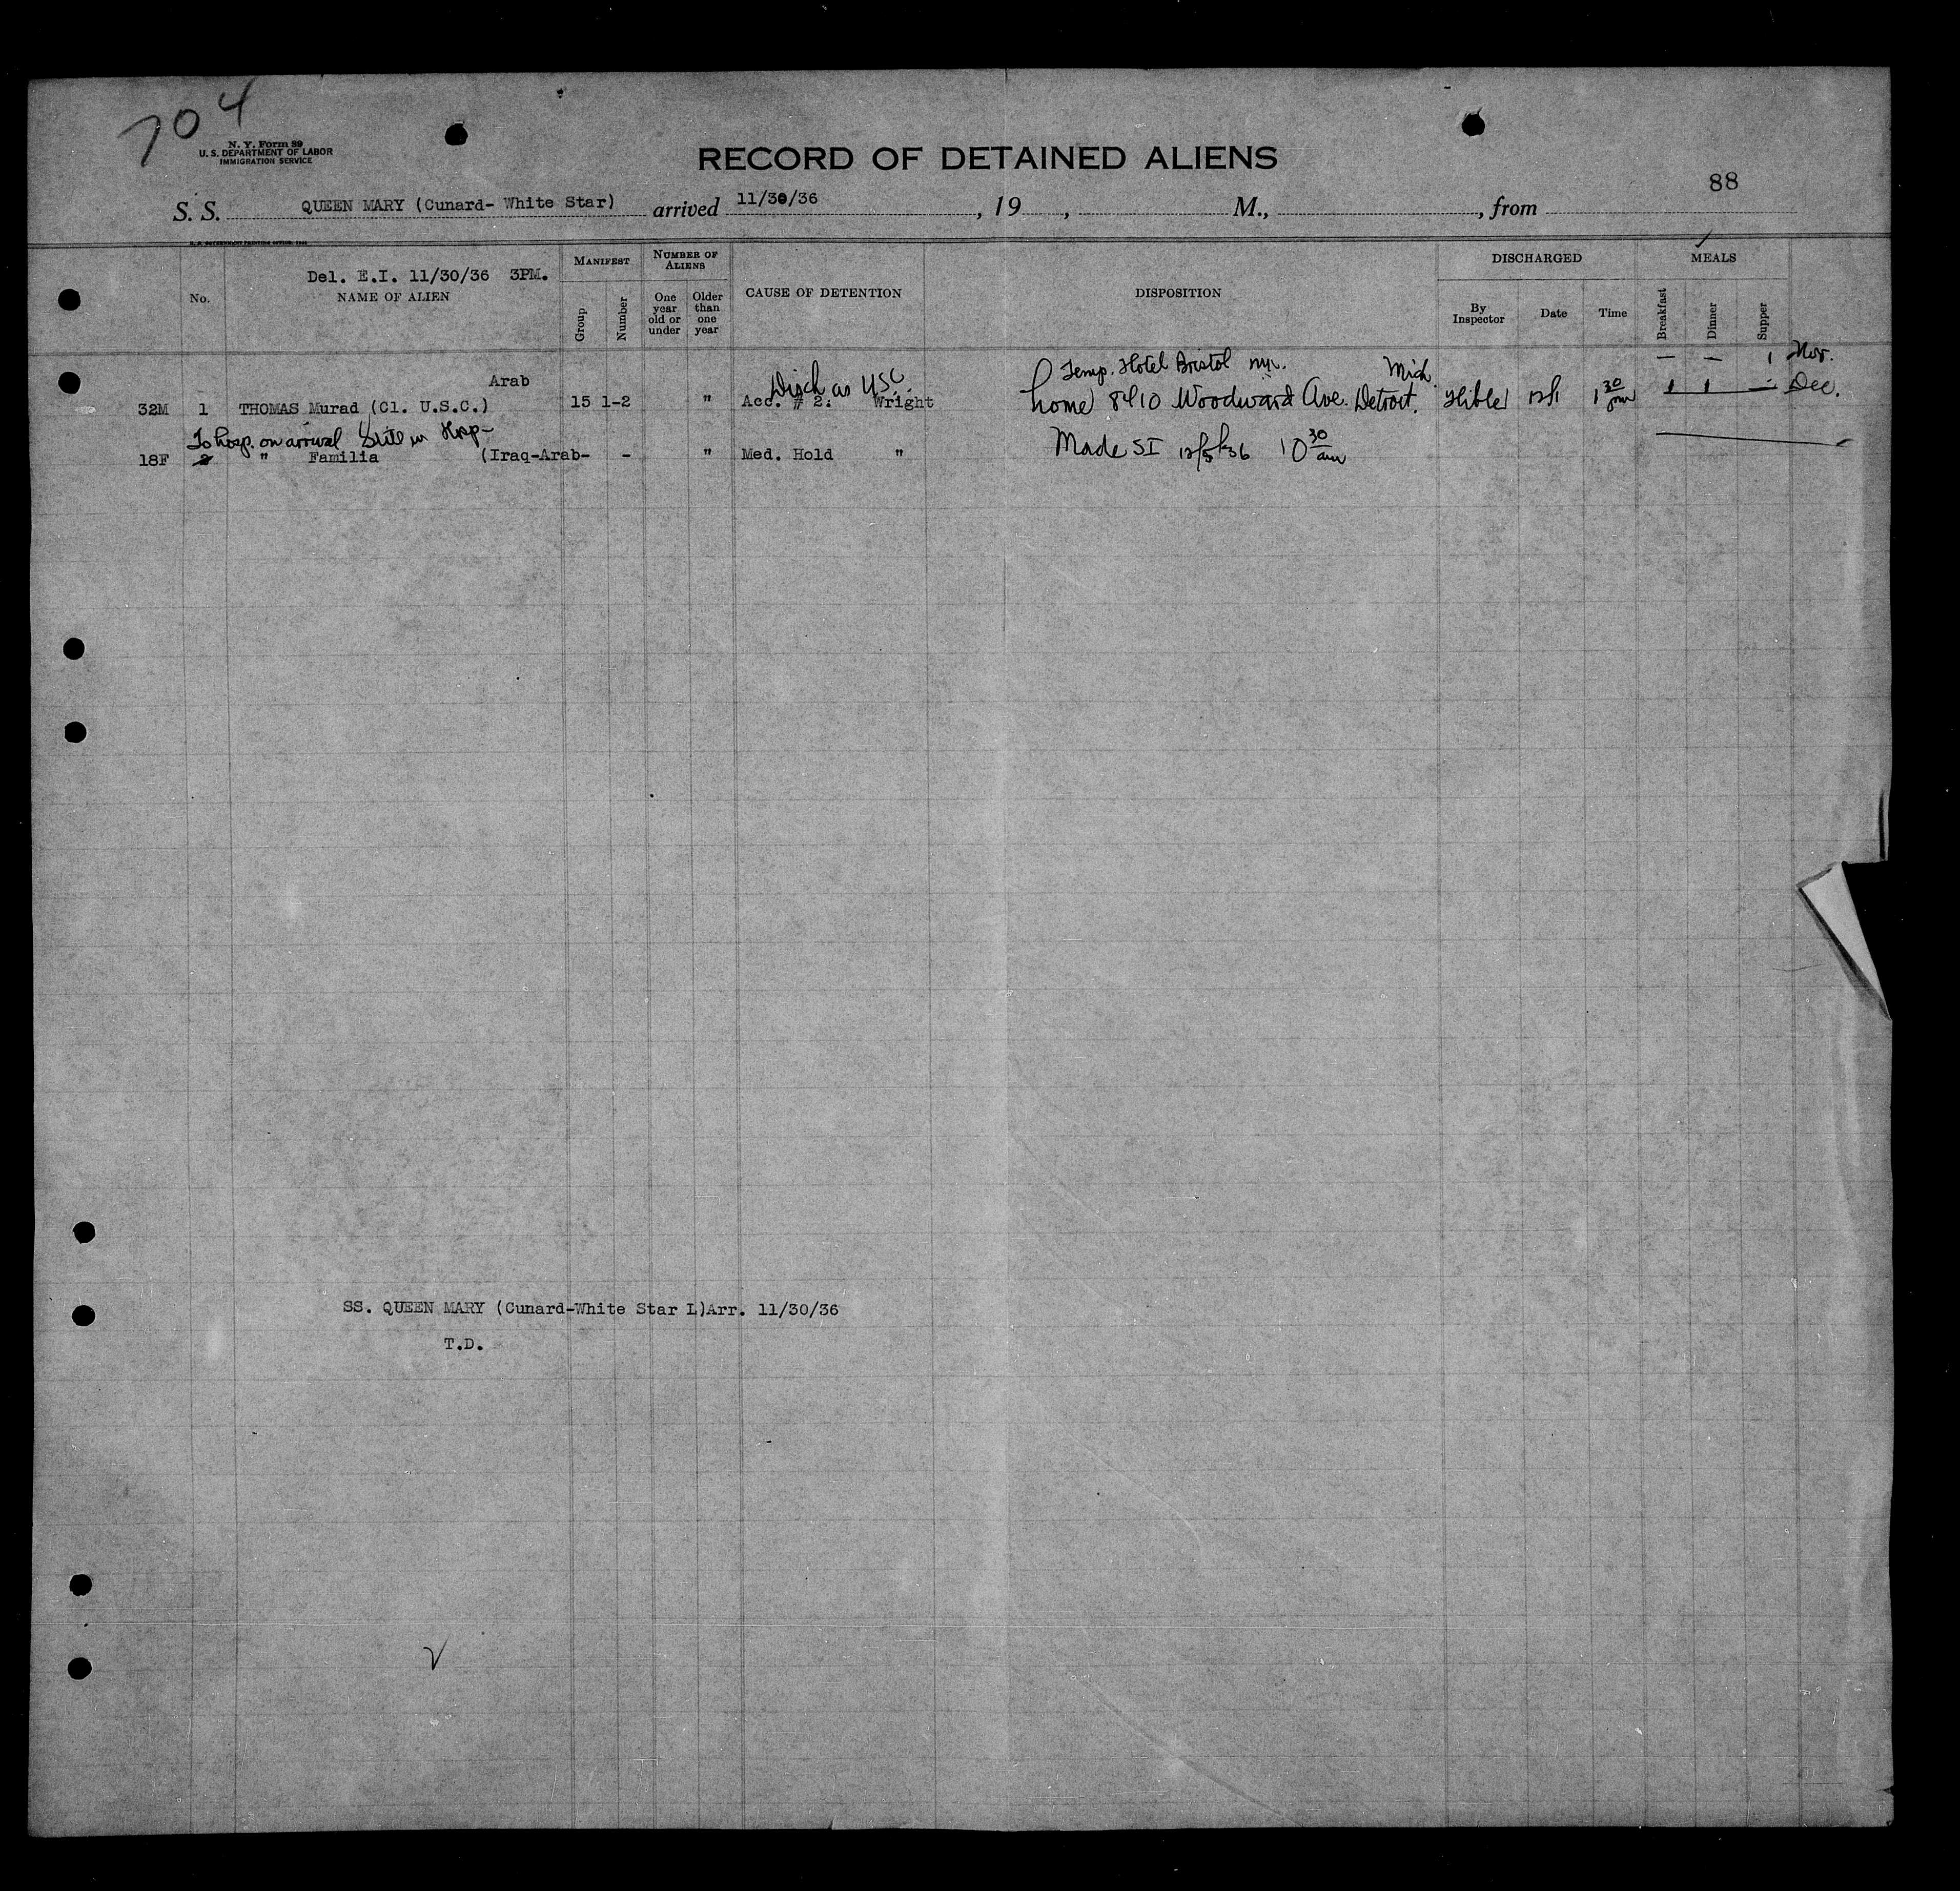 704
N. Y. Form 89
U. S. DEPARTMENT OF LABOR
IMMIGRATION SERVICE
RECORD OF DETAINED ALIENS
88
S. S. QUEEN MARY (Cunard- White Star) arrived 11/30/36, 19 , M., , from
U. S. GOVERNMENT PRINTING OFFICE
Del. E.I. 11/30/36 3PM.
No. NAME OF ALIEN
MANIFEST
Group Number
NUMBER OF ALIENS
One year old or under
Older than one year
CAUSE OF DETENTION
DISPOSITION
DISCHARGED
By Inspector Date Time
MEALS
Breakfast Dinner Supper
Temp. Hotel Bristol NYC. Mich. — — 1 Nov.
Arab Disch as USC
32M 1 THOMAS Murad (Cl. U.S.C.) 15 1-2 " Acc. # 2. Wright home 8410 Woodward Ave. Detroit. 12/1 1 30 pm 1 1 — Dec.
To hosp. on arrival Still in Hosp-
18F 2 " Familia (Iraq-Arab- - " Med. Hold " Made SI 12/5/36 10 30 am
SS. QUEEN MARY (Cunard-White Star L)Arr. 11/30/36
T.D.